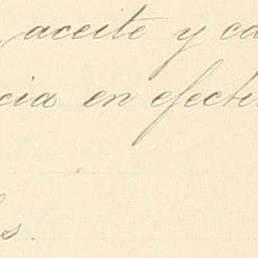 , aceite y ca
cia en efecti
s.